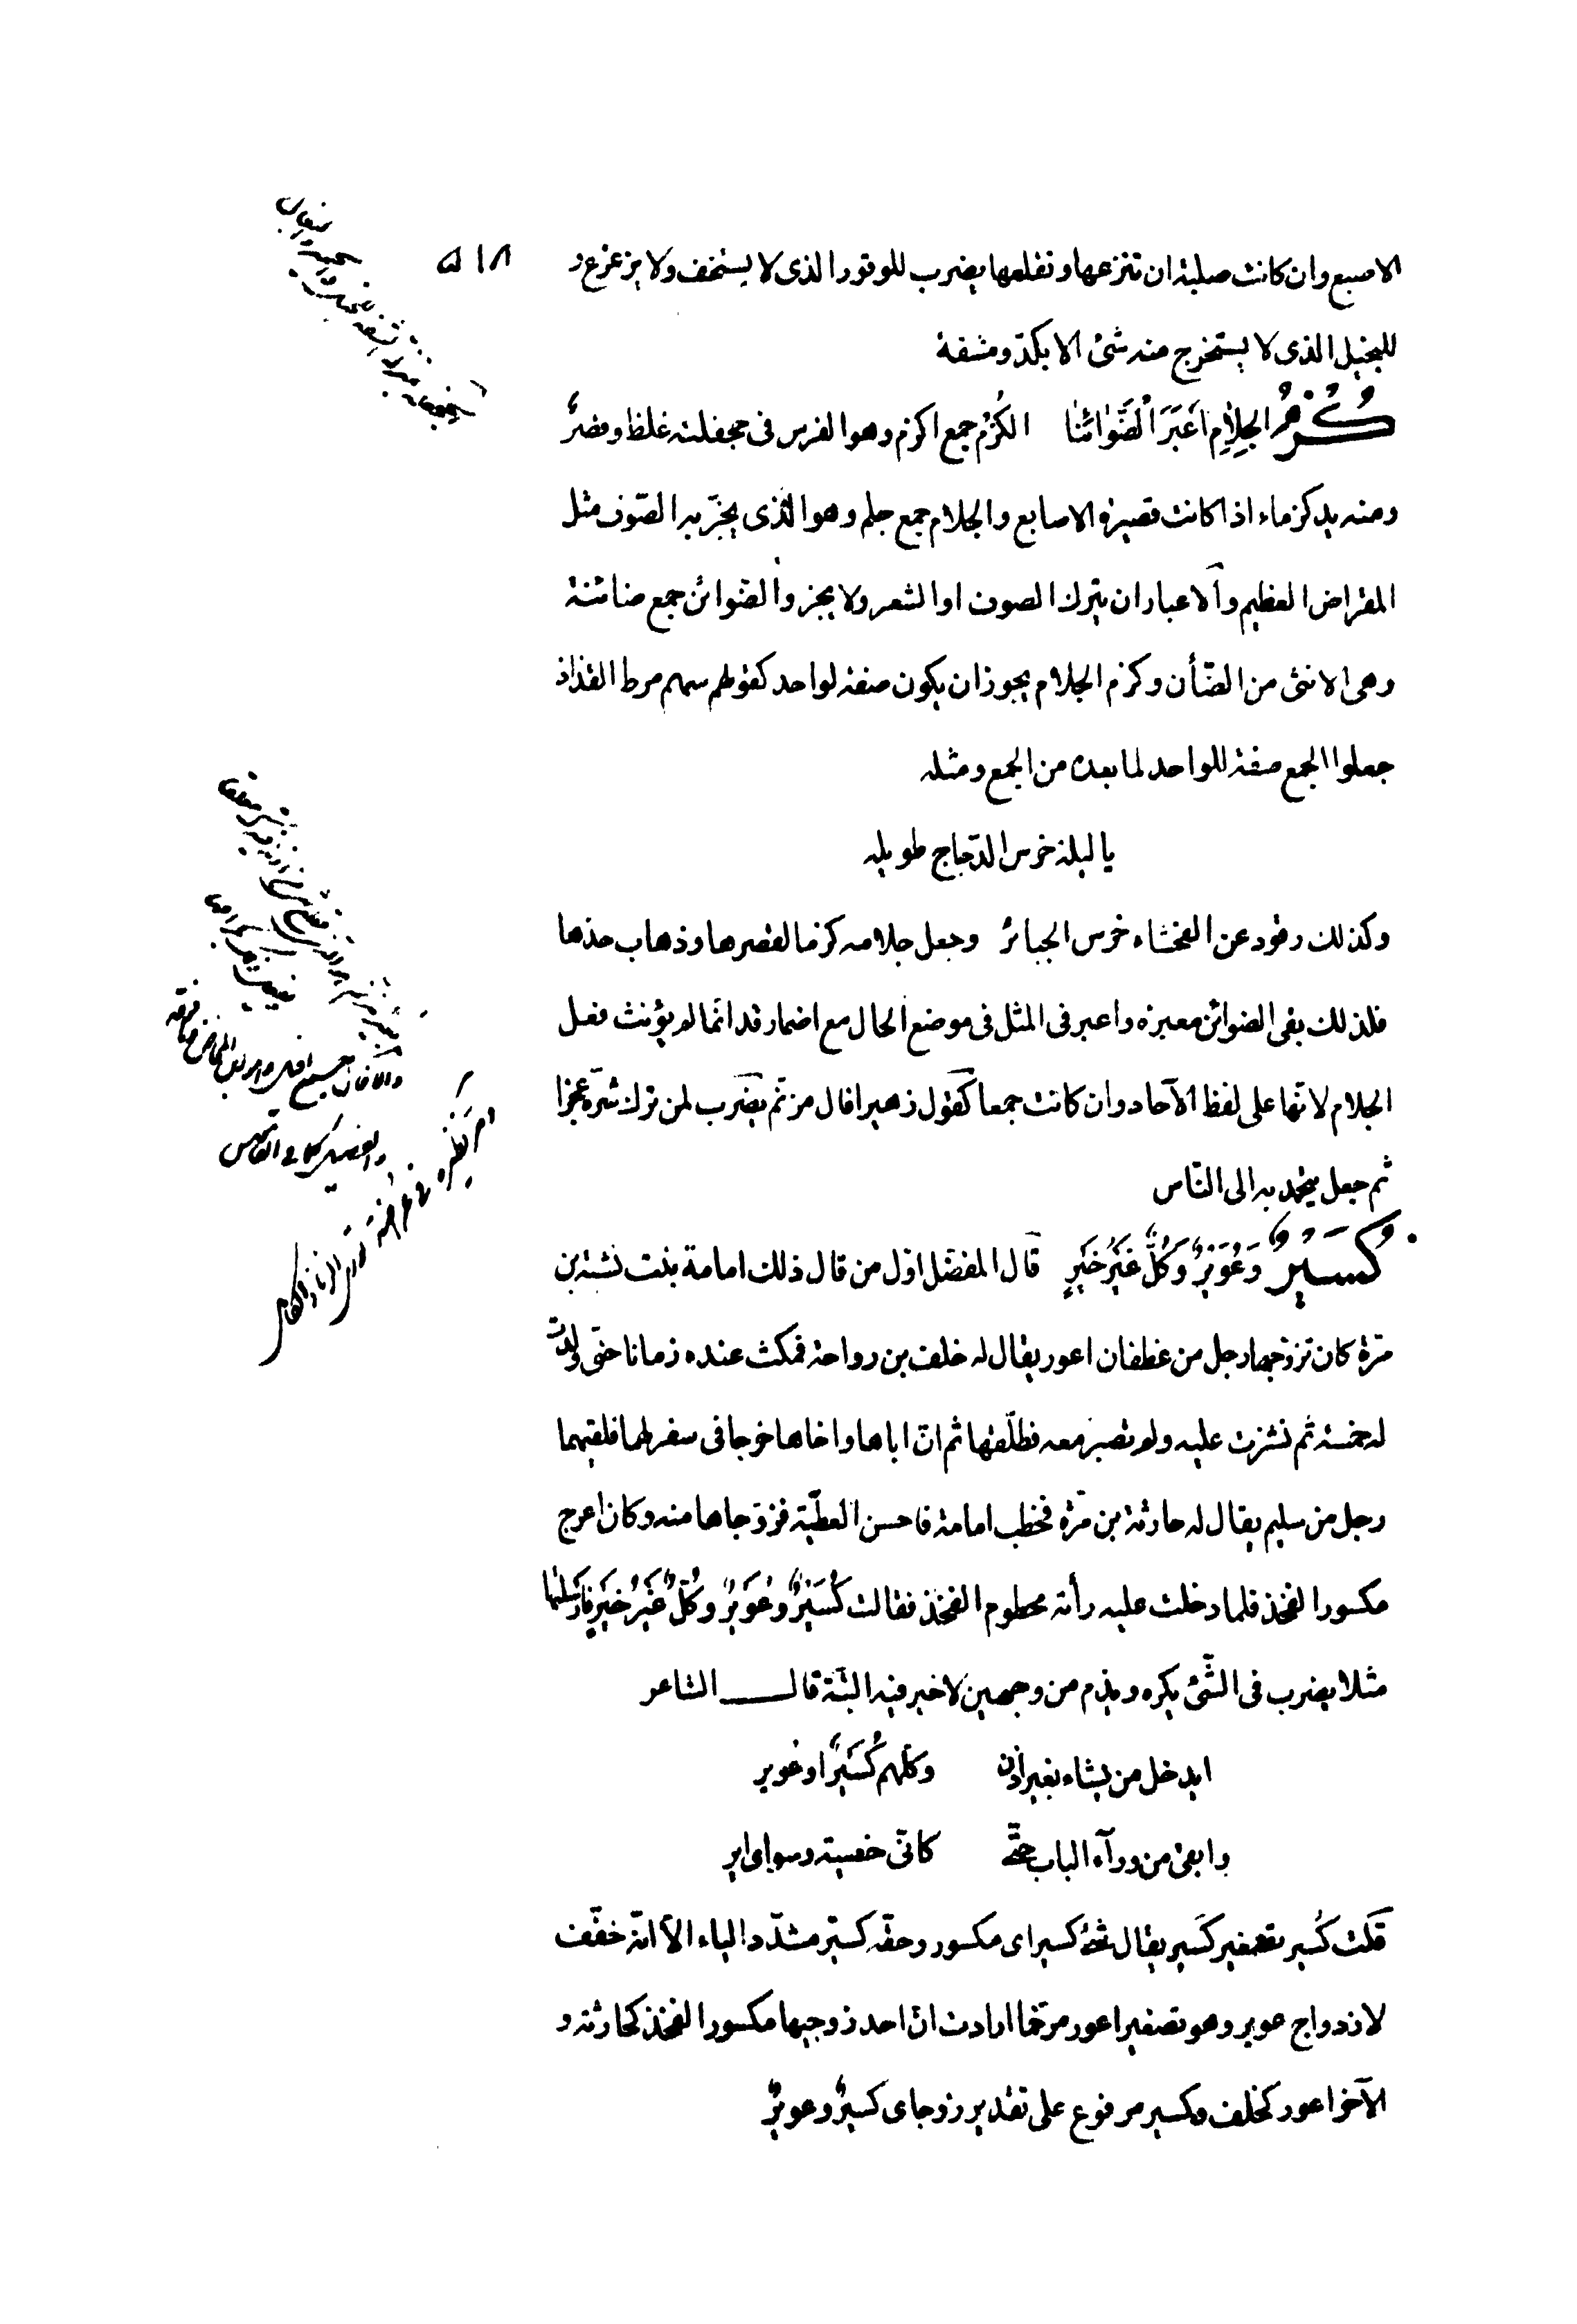 ۵۱۸
الاصبع وان كانت صلبة ان تنزعها وتقلعها يضرب للوقور الذى لا يستخف ولا يزعزع و
للبخيل الذى لا يستخرج منه شئ الا بكدّ ومشقة
كُزْمُ الجِلامِ اَعْبَرَ الضَّوائِنا الكُزْم جمع اكزم وهو الفرس فى جحفلته غلظ وقصرٌ
ومنه يد كزماء اذا كانت قصيرة الاصابع والجلام جمع جلم وهو الّذى يجزّ به الصّوف مثل
المقراض العظيم والاعبار ان يترك الصوف او الشعر ولا يجز والضوائن جمع ضائنة
وهى الانثى من الضّأن وكزم الجلام يجوز ان يكون صفة لواحد كقولهم سهم مرط القذاذ
جعلوا الجمع صفة للواحد لما بعده من الجمع ومثله
يا ليلة خرس الدّجاج طويله
وكذلك رقود عن الفحشاء خرس الجبائر وجعل جلامه كزما لقصرها وذهاب حدها
فلذلك بقى الضوائن معبرة واعبر فى المثل فى موضع الحال مع اضمار قد انّما لم يؤنث فعل
الجلام لانّها على لفظ الآحاد وان كانت جمعا كقول زهير افال مزنّم يضرب لمن ترك شرّه عجزا
ثم جعل يتحمد به الى النّاس
كُسَيْرٌ وَعُوَيْرٌ وَكُلٌّ غَيْرُ خَيْرٍ قال المفضّل اوّل من قال ذلك امامة بنت نشبة بن
مرّة كان تزوّجها رجل من غطفان اعور يقال له خلف بن رواحة فمكث عنده زمانا حتّى ولدت
له خمسة ثم نشزت عليه ولم تصبر معه فطلّقها ثم انّ اباها واخاها خرجا فى سفر لهما فلقيهما
رجل من سليم يقال له حارثة بن مرّة فخطب امامة فاحسن العطيّة فزوّجاها منه وكان اعرج
مكسور الفخذ فلما دخلت عليه رأته محطوم الفخذ فقالت كُسَيْرٌ وعُوَيْرٌ وكُلٌّ غَيْرُ خَيْرٍ فارسلتها
مثلا يضرب فى الشّئ يكره ويذم من وجهين لا خير فيه البتّة قال الشاعر
ايدخل من يشاء بغير اذن وكلهم كُسَيْرٌ او عوير
وابقى من ورآء الباب حتّى كانّى خصية وسواى اير
قلت كُسير تصغير كَسير يقال شئ كسير اى مكسور وحقّه كسيّر مشدّد الياء الّا انّه خفّف
لازدواج عوير وهو تصغير اعور مرخّما ارادت انّ احد زوجيها مكسور الفخذ كحارثة و
الآخر اعور كخلف وكسير مرفوع على تقدير زوجاى كسيرٌ وعويرٌ